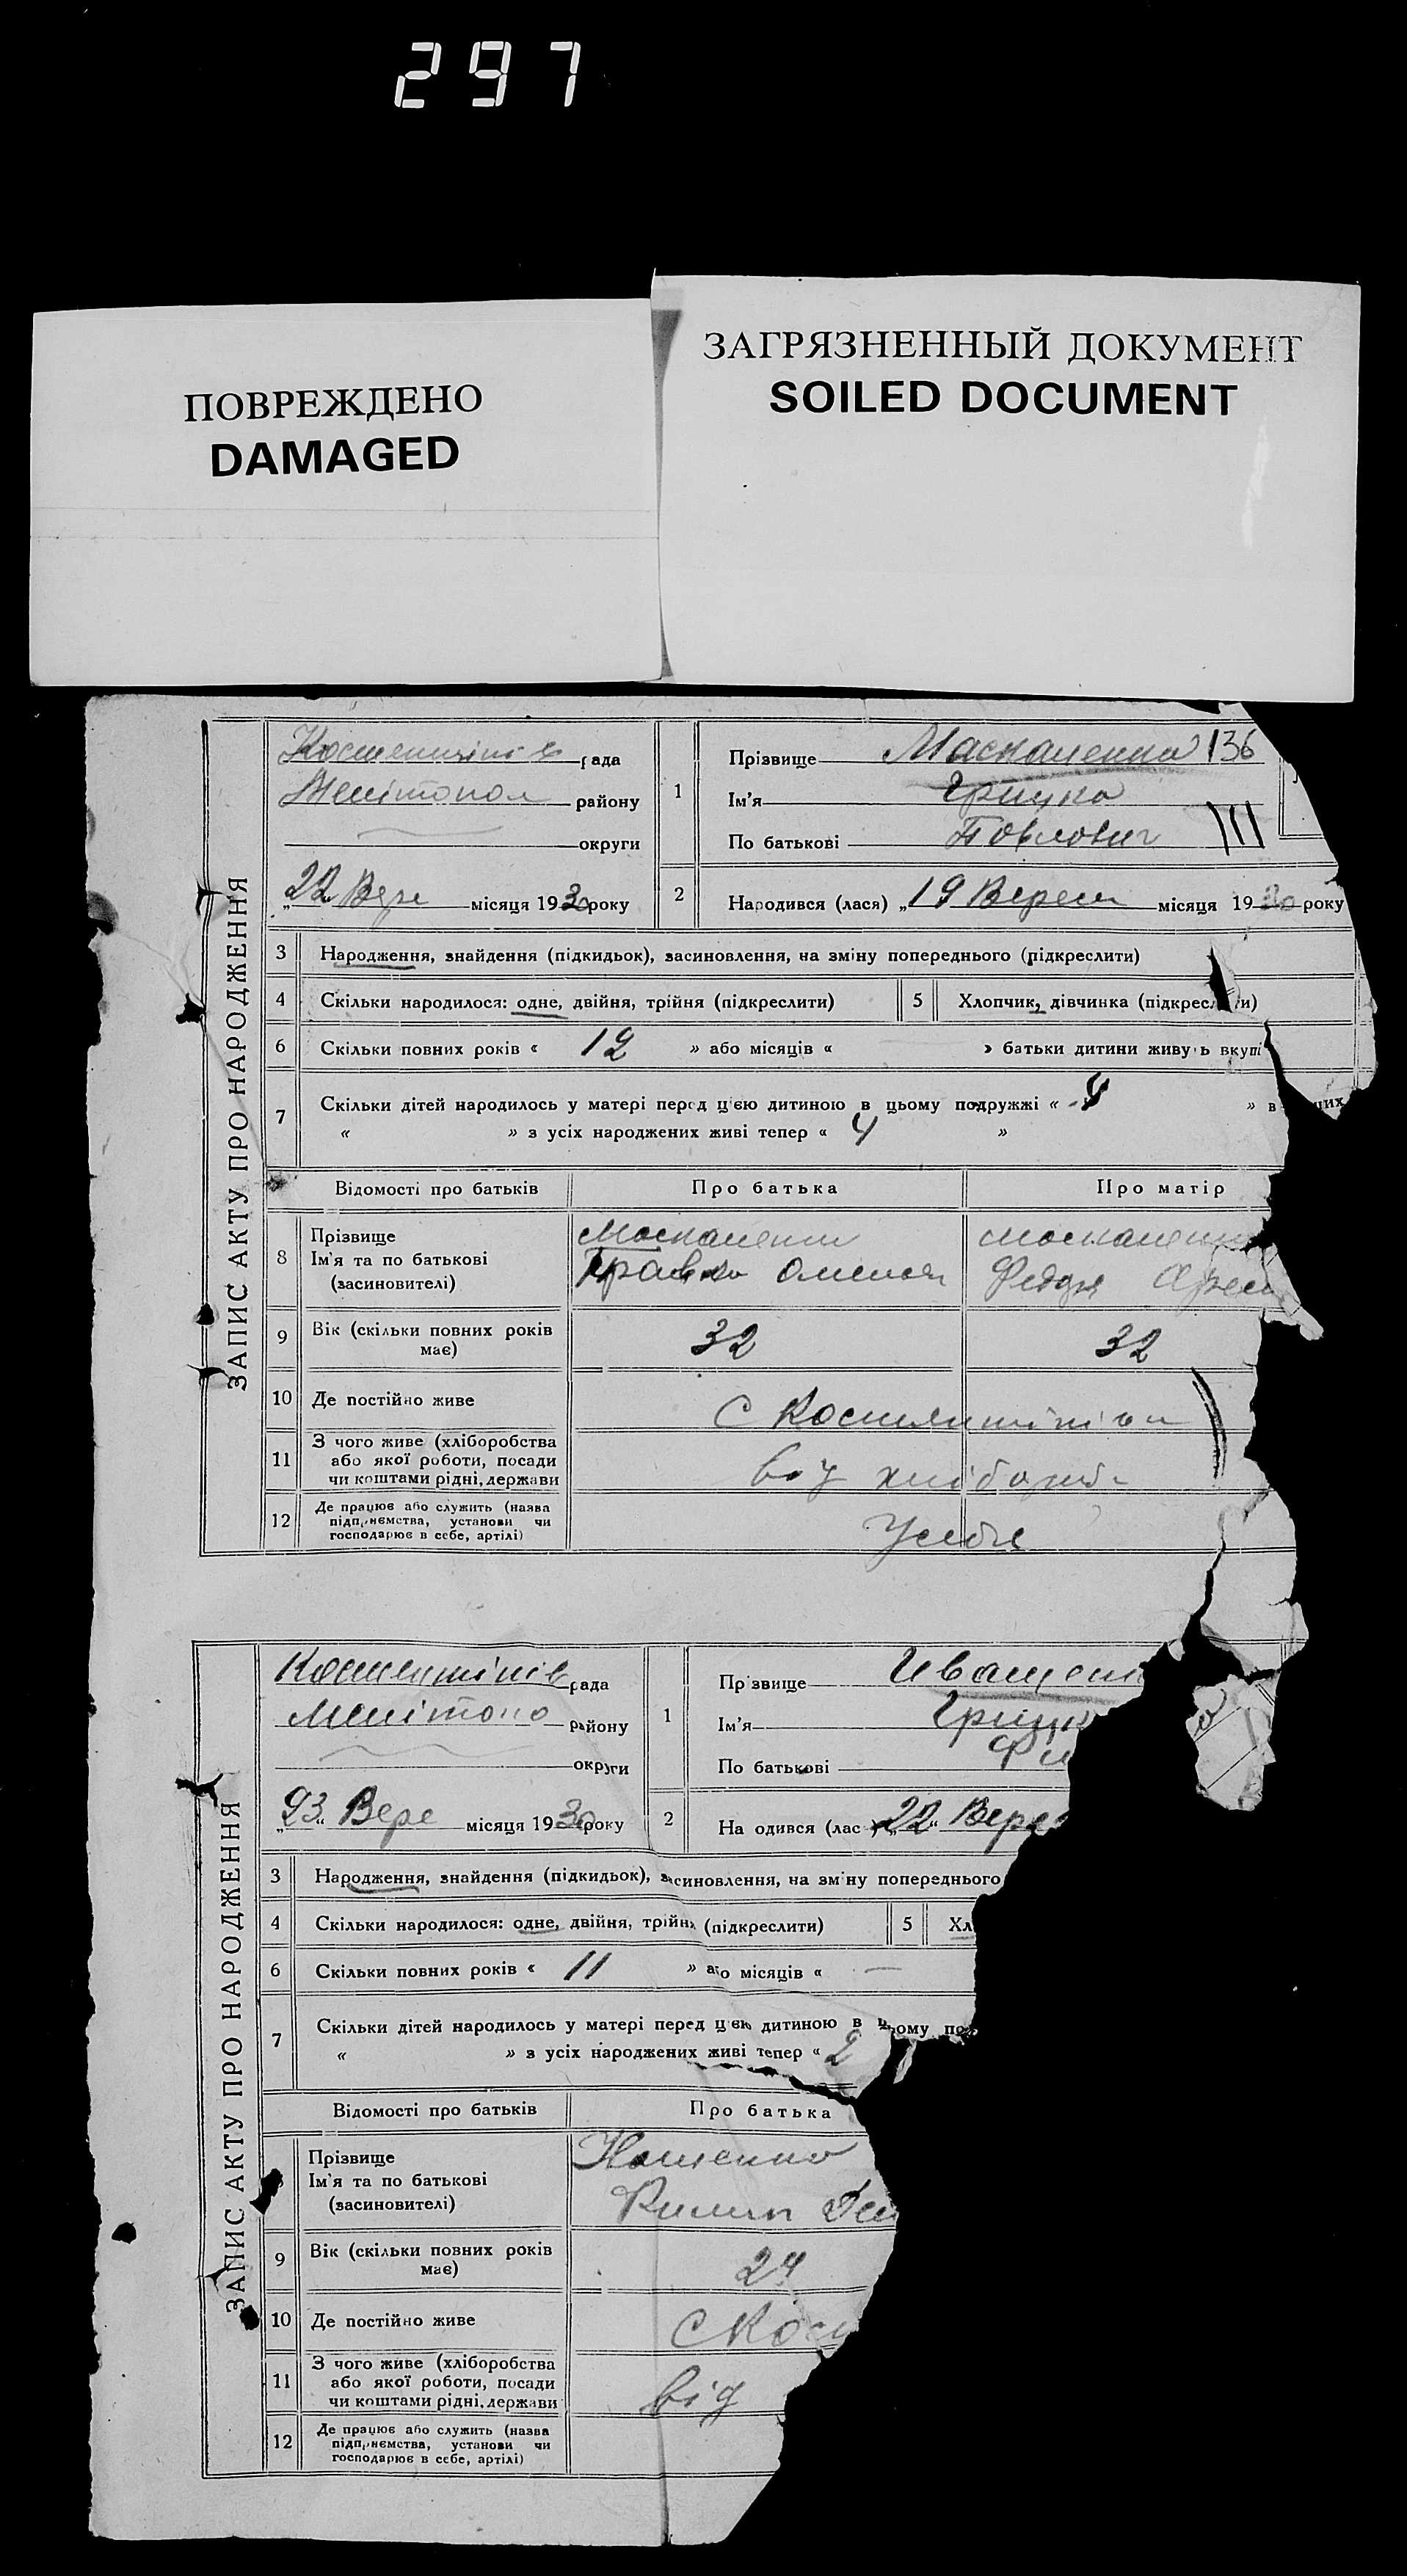 297
ПОВРЕЖДЕНО
DAMAGED
ЗАГРЯЗНЕННЫЙ ДОКУМЕНТ
SOILED DOCUMENT
ЗАПИС АКТУ ПРО НАРОДЖЕННЯ
рада
району
округи
„22 Вере місяця 1930 року
1 Прізвище 136
Ім'я Грицко
По батькові Повлович
2 Народився (лася) „19 Вересн місяця 1930 року
3 Народження, знайдення (підкидьок), засиновлення, на зміну попереднього (підкреслити)
4 Скільки народилося: одне, двійня, трійня (підкреслити) 5 Хлопчик, дівчинка (підкреслити)
6 Скільки повних років « 12 » або місяців « » батьки дитини живуть вкупі
7 Скільки дітей народилось у матері перед цією дитиною в цьому подружжі « 4 » в
« » з усіх народжених живі тепер « 4 »
Відомості про батьків Про батька Про матір
8 Прізвище
Ім'я та по батькові
(засновителі)
9 Вік (скільки повних років має) 32 32
10 Де постійно живе С
11 З чого живе (хліборобства
або якої роботи, посади
чи коштами рідні, держави від
12 Де працює або служить (назва
підприємства, установи чи
господарює в себе, артілі) У себе
ЗАПИС АКТУ ПРО НАРОДЖЕННЯ
рада
Мелітопо району
округи
„23 Вере місяця 1930 року
1 Прізвище Иващен
Ім'я Грицк
По батькові Фи
2 Народився (лас ) „22 Верес
3 Народження, знайдення (підкидьок), засиновлення, на зміну попереднього
4 Скільки народилося: одне, двійня, трійня (підкреслити) 5 Хл
6 Скільки повних років « 11 » або місяців « —
7 Скільки дітей народилось у матері перед цією дитиною в цьому под
« » з усіх народжених живі тепер « 2
Відомості про батьків Про батька
Прізвище
Ім'я та по батькові
(засиновителі)
9 Вік (скільки повних років має) 24
10 Де постійно живе С Кос
11 З чого живе (хліборобства
або якої роботи, посади
чи коштами рідні, держави від
12 Де працює або служить (назва
підприємства, установи чи
господарює в себе, артілі)